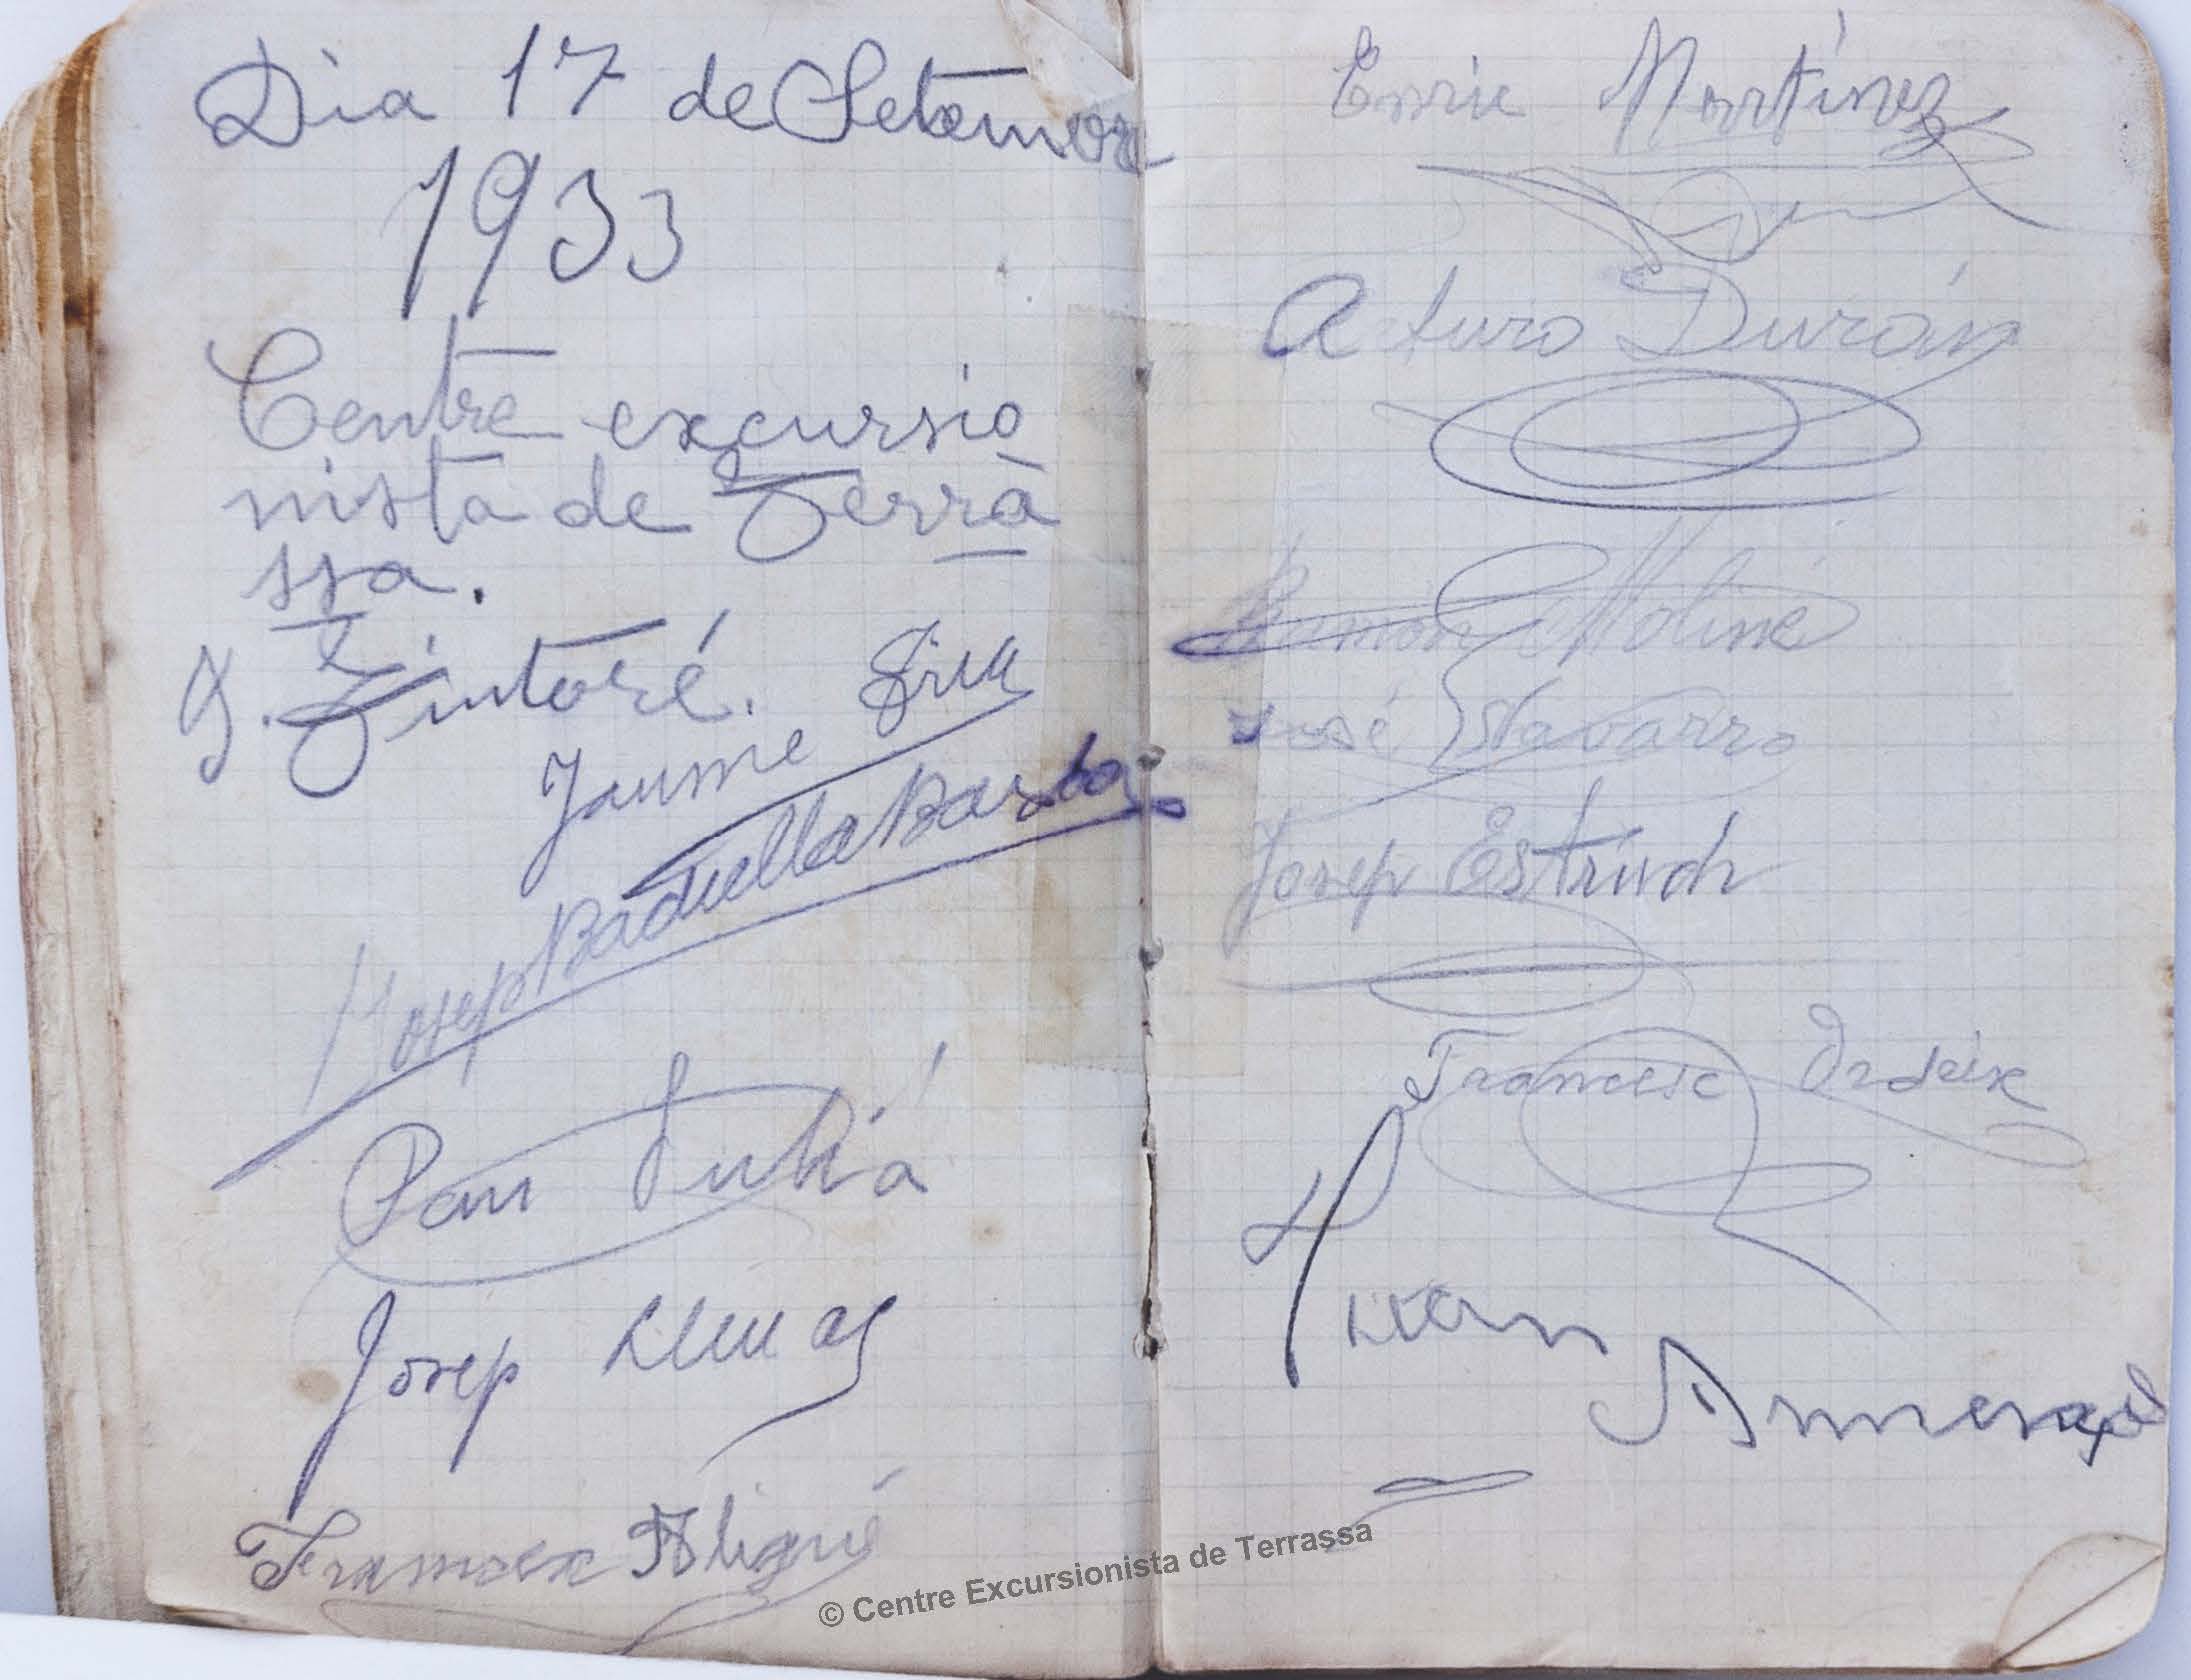 Dia 17 de Setembre
1933
Centre excursio
nista de Terrà
ssa.
J. Tintoré.
Jaume Grau
Josep Badiella Barba
Pau Juliá
Josep Llunas
Francesc Aligué
Enric Martínez
Arturo Durán
Ramon Moliné
José Navarro
Josep Estruch
Francesc Ordeix
Juan
Armengol
© Centre Excursionista de Terrassa